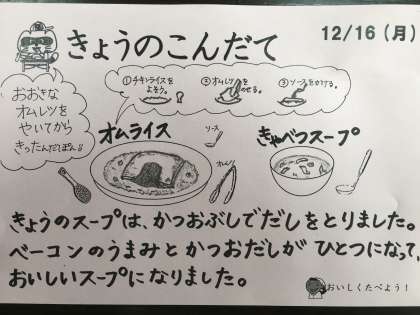 きょうのこんだて
12/16(月)
おおきな
オムレツを
やいてから
きったんだぽん!!
①チキンライスを
よそう。
②オムレツを
のせる。
③ソースをかける。
オムライス
ソース
きゃべつスープ
きょうのスープは、かつおぶしでだしをとりました。
ベーコンのうまみとかつおだしがひとつになって、
おいしいスープになりました。
おいしくたべよう!